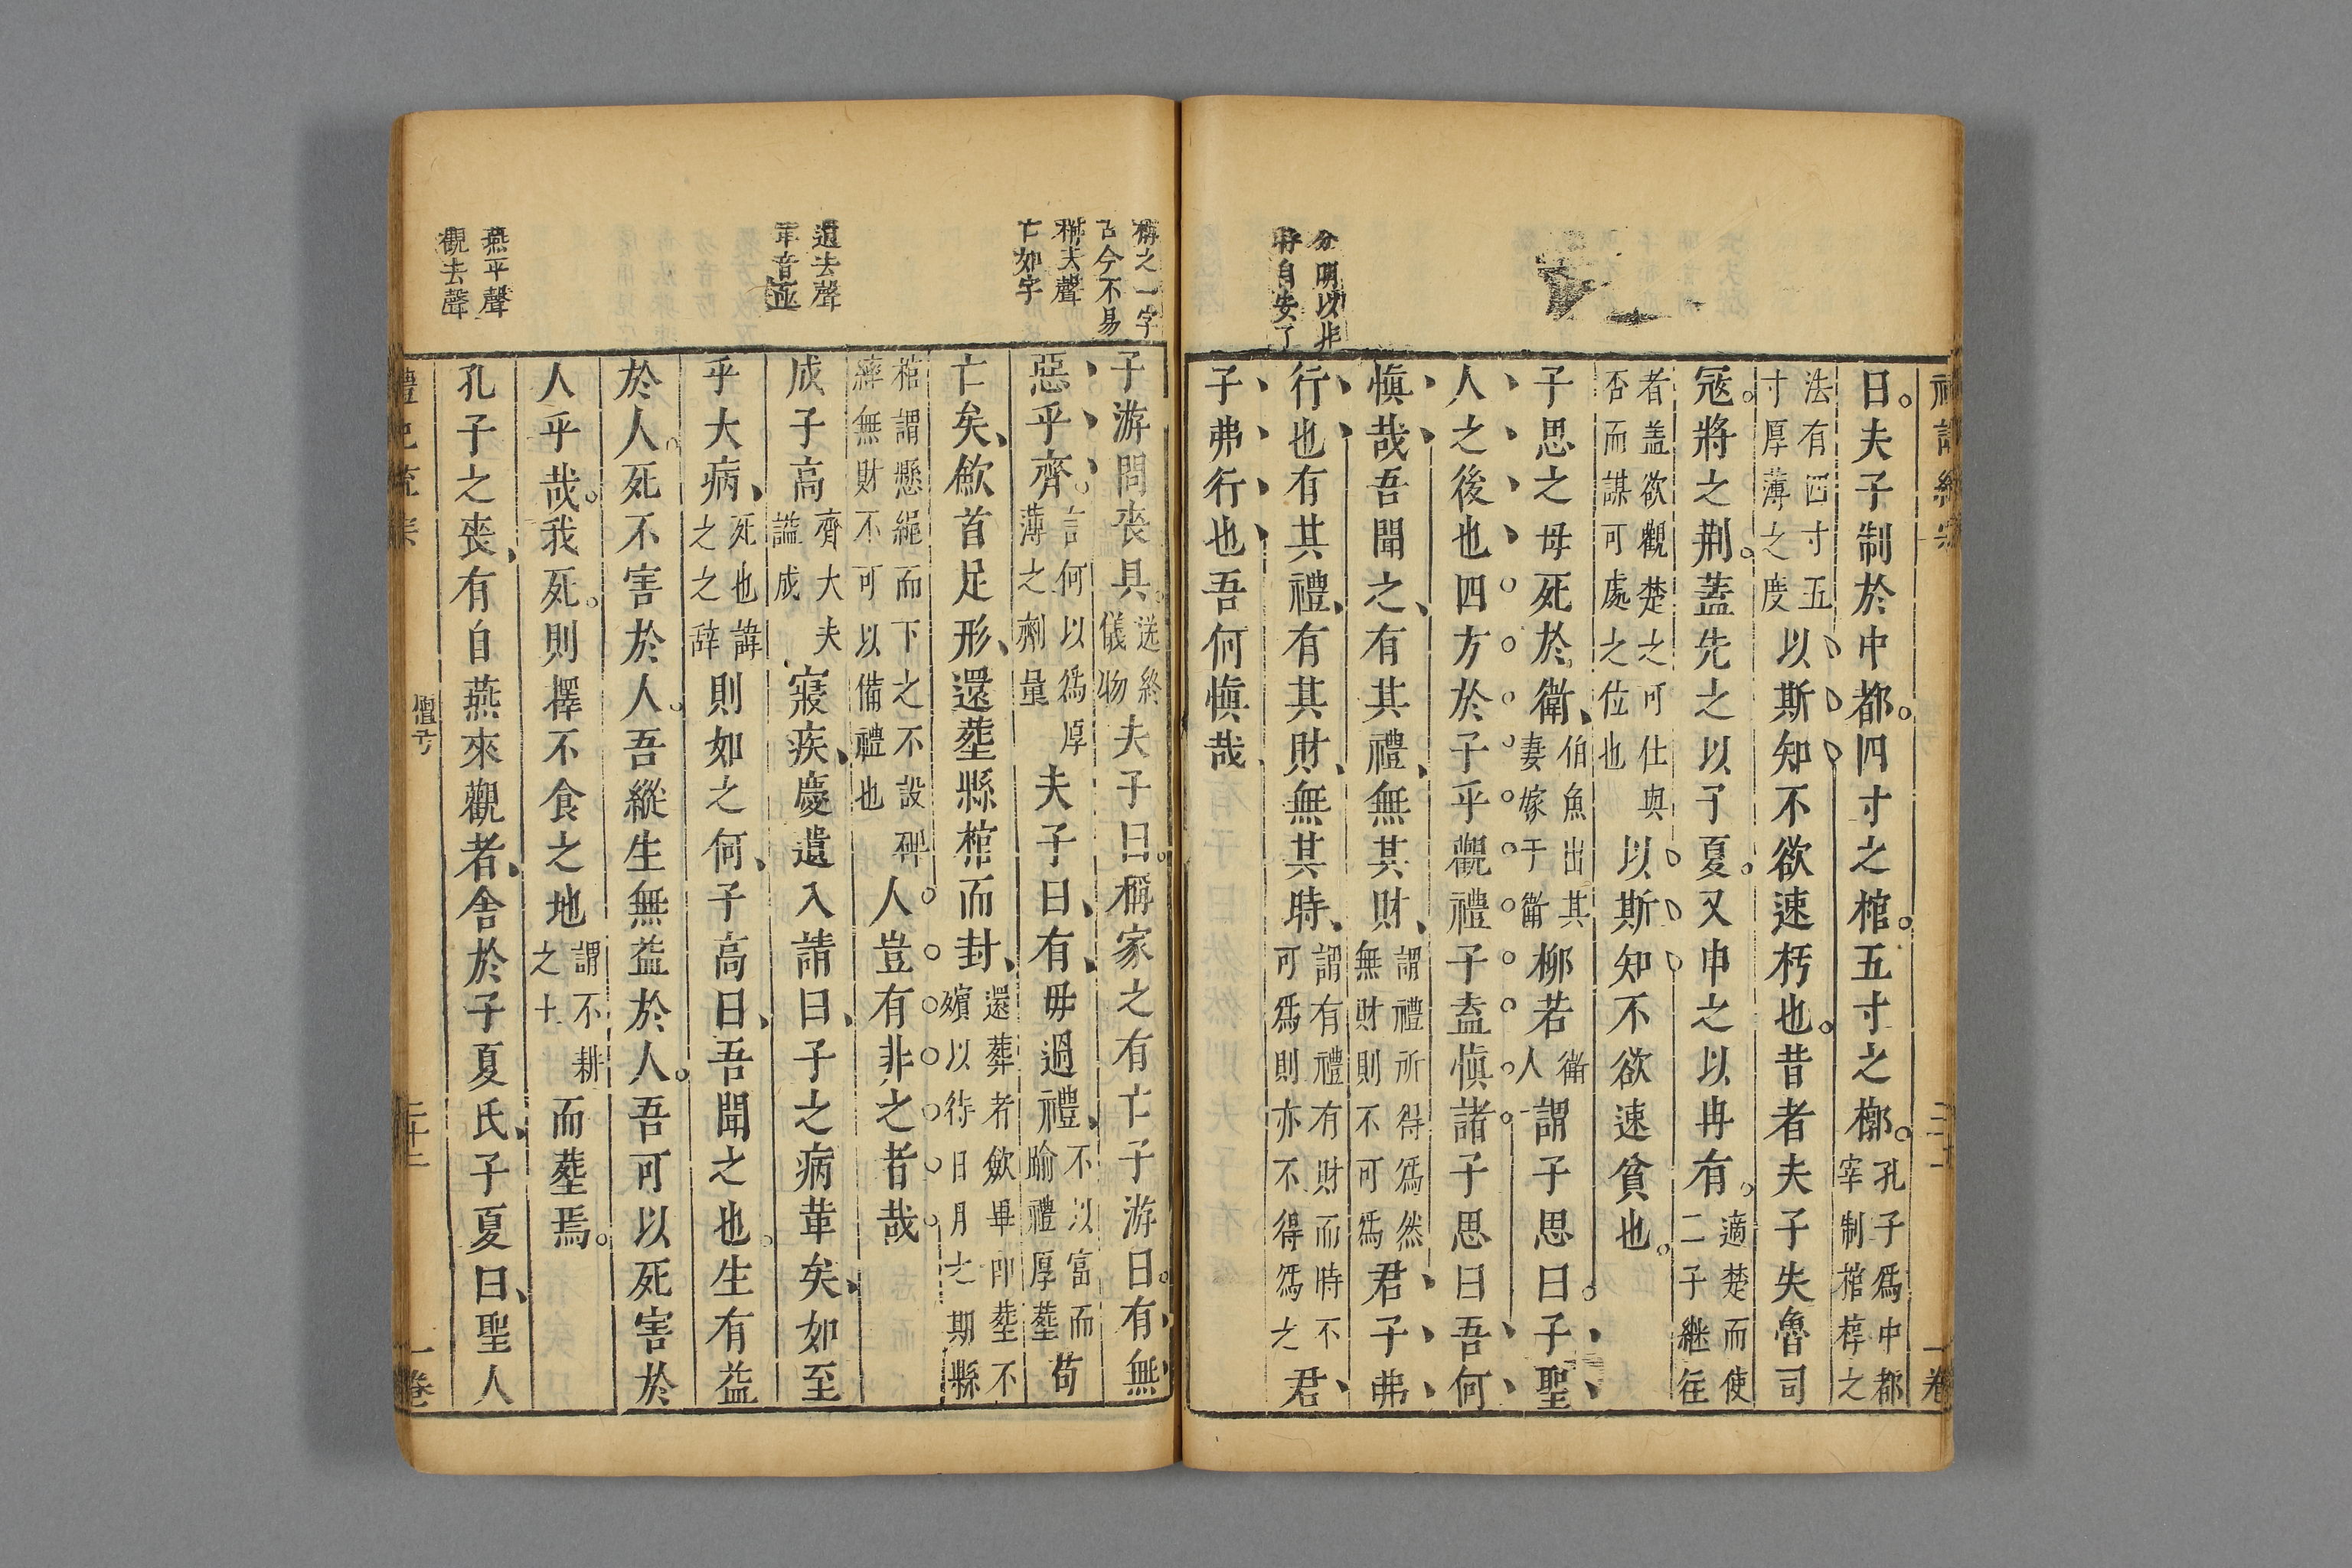 曰夫子制於中都四寸之棺五寸之槨孔子爲中都宰制棺椁之
法有四寸五寸厚薄之度以斯知不欲速朽也昔者夫子失魯司
寇將之荆葢先之以子夏又申之以冉有適楚而使二子継往
者盖欲觀楚之可仕與否而謀可處之位也以斯知不欲速貧也
子思之母死於衛伯魚出其妻嫁于衛柳若衛人謂子思曰子聖
人之後也四方於子乎觀禮子盍愼諸子思曰吾何
愼哉吾聞之有其禮無其財謂禮所得爲然無財則不可爲君子弗
行也有其禮有其財無其時謂有禮有財而時不可爲則亦不得爲之君
子弗行也吾何愼哉
分明以非
時自安了
稱之一字
古今不易
稱去聲
亡如字
子游問喪具送終儀物夫子曰稱家之有亡子游曰有無
惡乎齊言何以爲厚薄之劑量夫子曰有毋過禮不以富而踰禮厚塟苟
亡矣斂首足形還塟縣棺而封還葬者斂畢即塟不殯以待日月之期縣
棺謂懸繩而下之不設碑繂無財不可以備禮也人豈有非之者哉
遺去聲
革音亟
成子高齊大夫謚成寢疾慶遺入請曰子之病革矣如至
乎大病死也諱之之辞則如之何子高曰吾聞之也生有益
於人死不害於人吾縱生無益於人吾可以死害於
人乎哉我死則擇不食之地謂不耕之土而塟焉
燕平聲
觀去聲
孔子之喪有自燕來觀者舍於子夏氏子夏曰聖人
檀弓
二十二
一卷